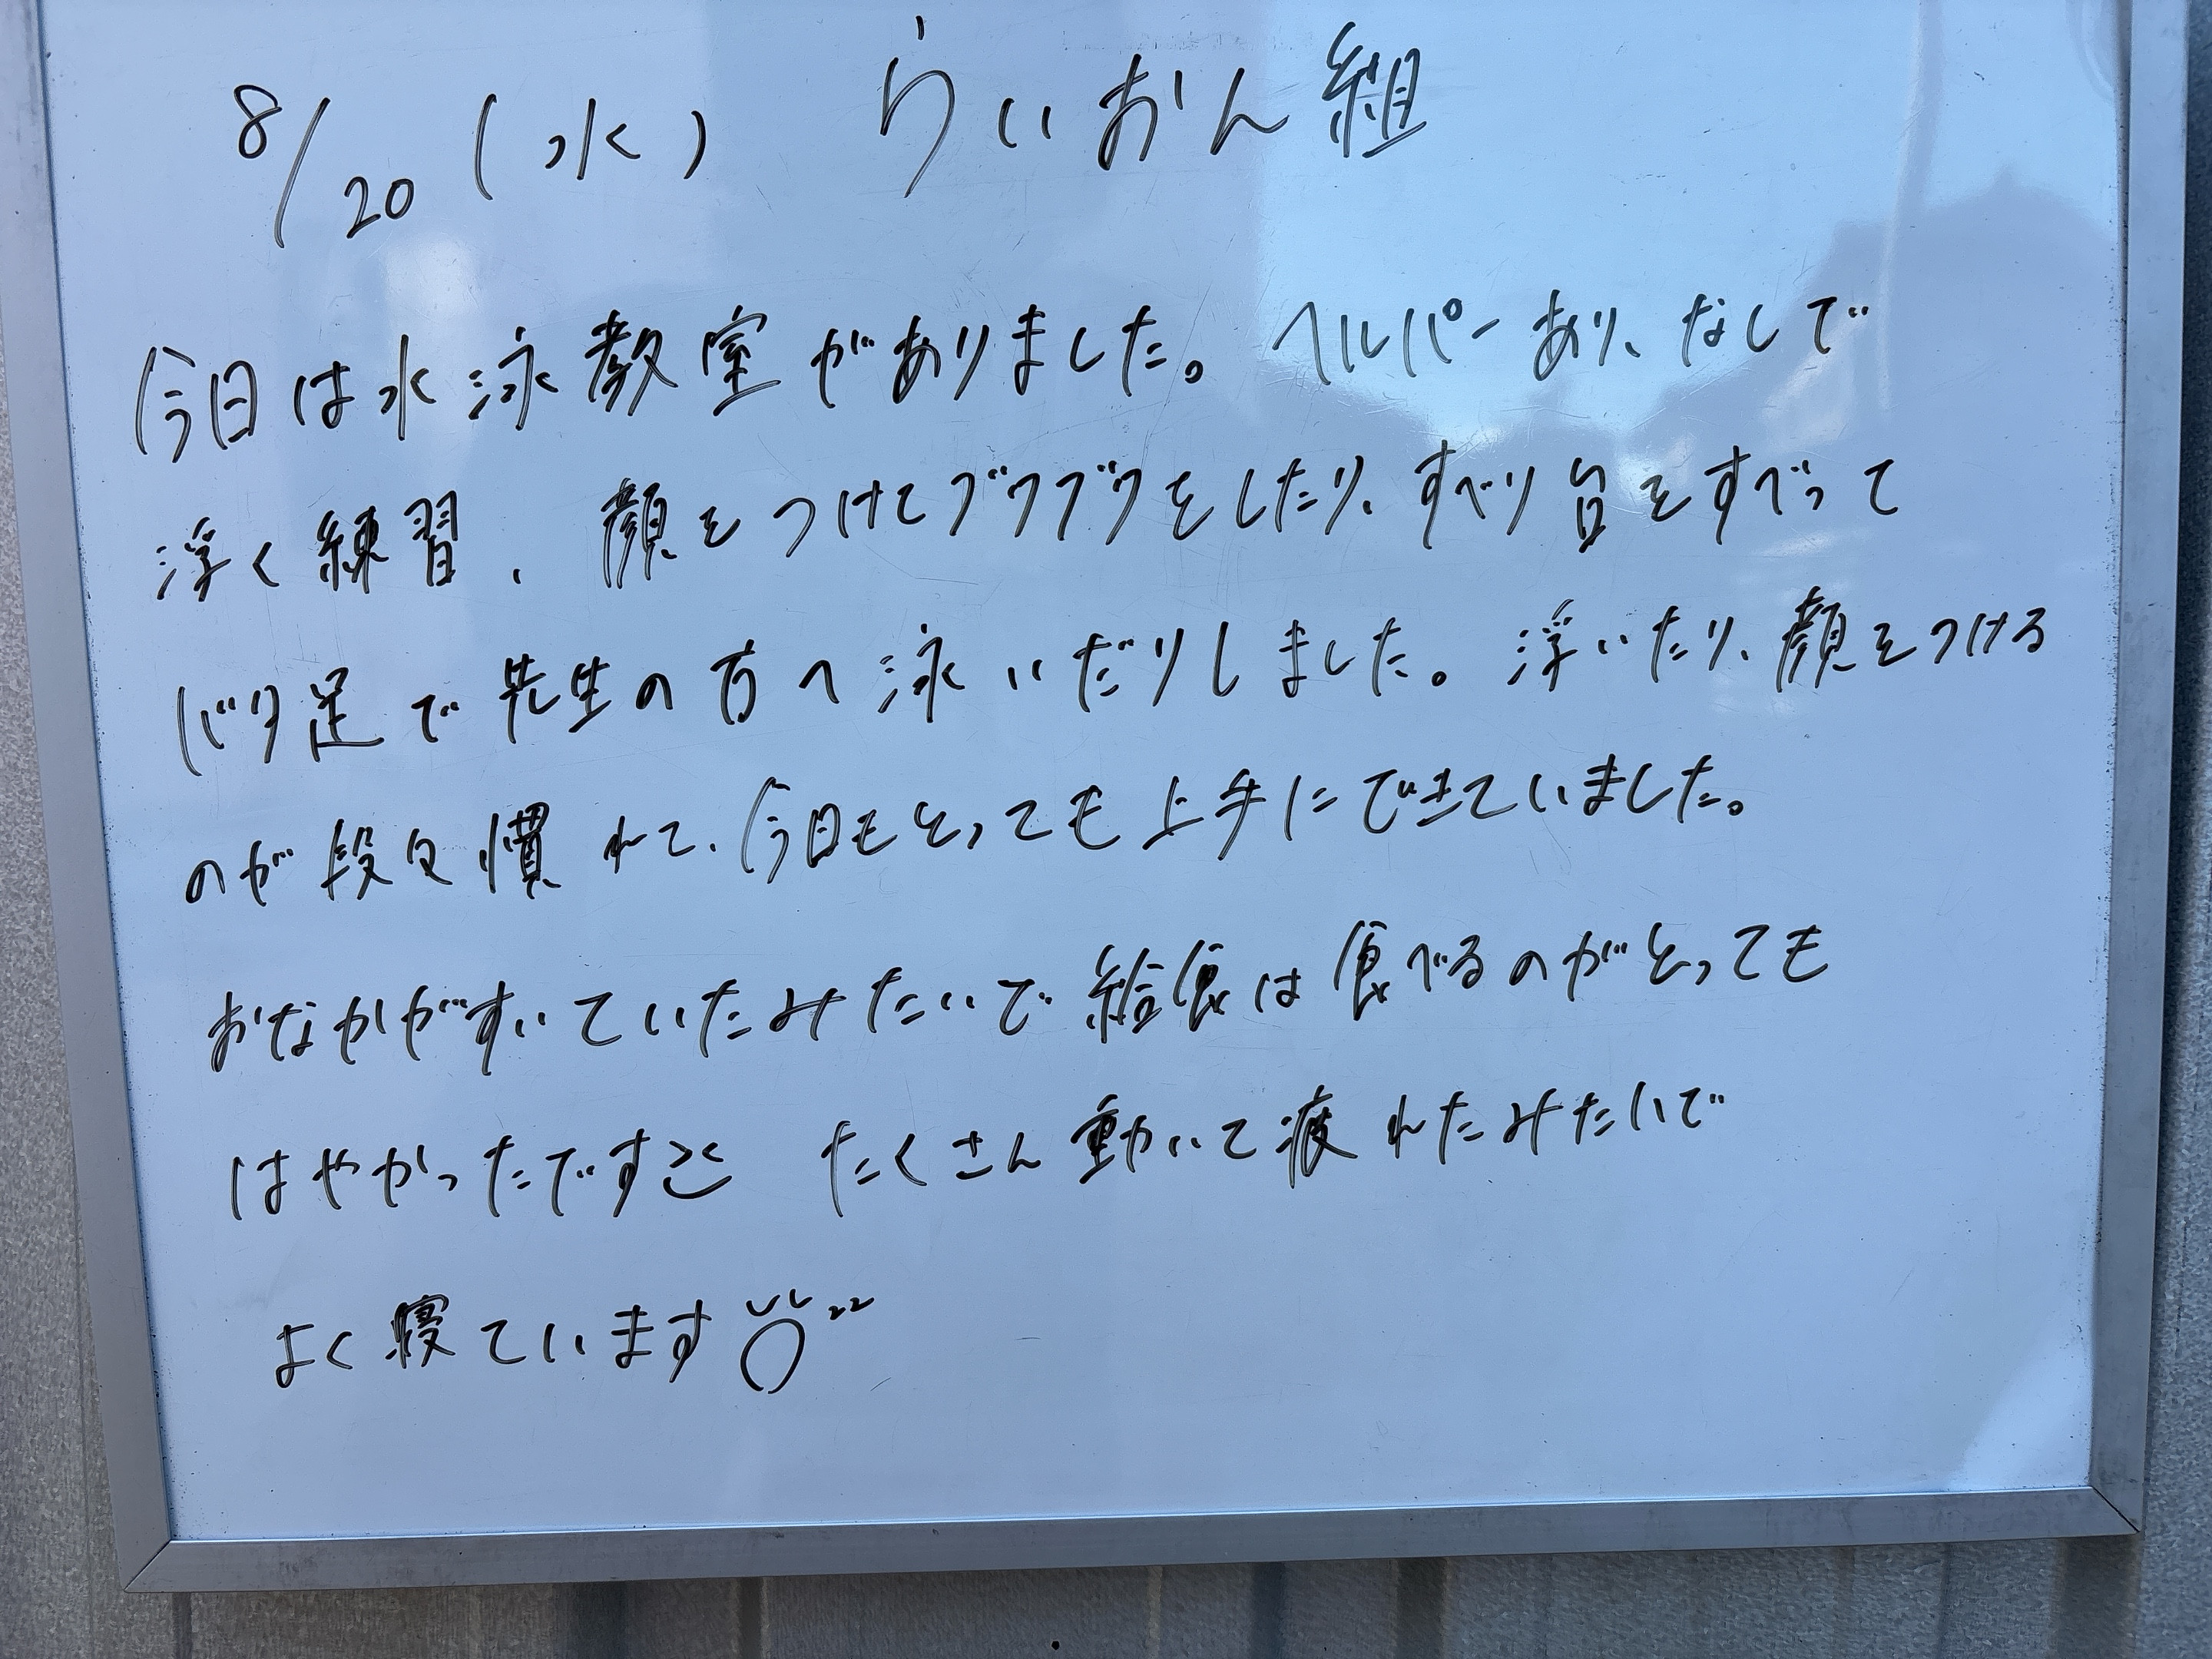 8/20(水) らいおん組
今日は水泳教室がありました。ヘルパーあり、なしで
浮く練習、顔をつけてブクブクをしたり、すべり台をすべって
バタ足で先生の方へ泳いだりしました。浮いたり、顔をつける
のが段々慣れて、今日もとっても上手にできていました。
おなかがすいていたみたいで給食は食べるのがとっても
はやかったです たくさん動いて疲れたみたいで
よく寝ています